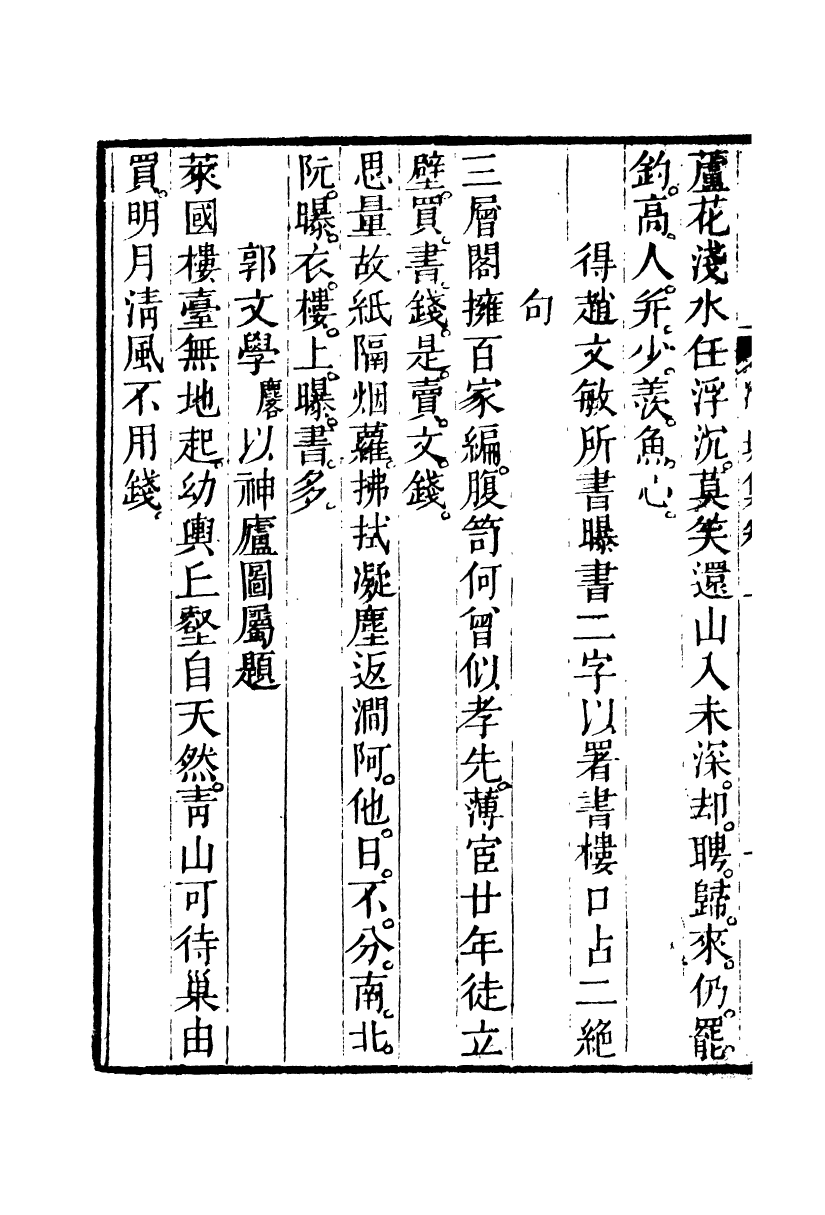 蘆花淺水任浮沉莫笑還山人未深却聘歸來仍罷
釣高人并少羨魚心
得趙文敏所書曝書二字以署書樓口占二絕
句
三層閣擁百家編腹笥何曾似孝先薄宦廿年徒立
壁買書錢是賣文錢
思量故紙隔烟蘿拂拭凝塵返澗阿他日不分南北
阮曝衣樓上曝書多
郭文學麐以神廬圖屬題
萊國樓臺無地起幼輿丘壑自天然靑山可待巢由
買明月淸風不用錢